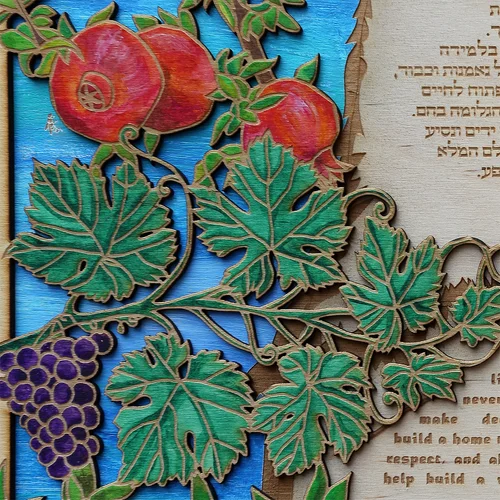 ת
ד.
בלמידה
נאמנות וכבוד,
פתוח לחיים
הגלומה בהם.
ידים תסיע
המלא
פע.
never
make
build a home
respect, and
help build a